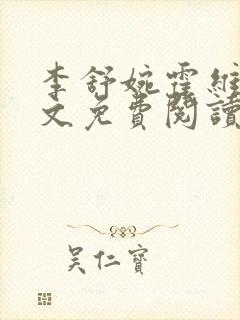 李舒婉霍維
文免費閱讀
吴仁寶